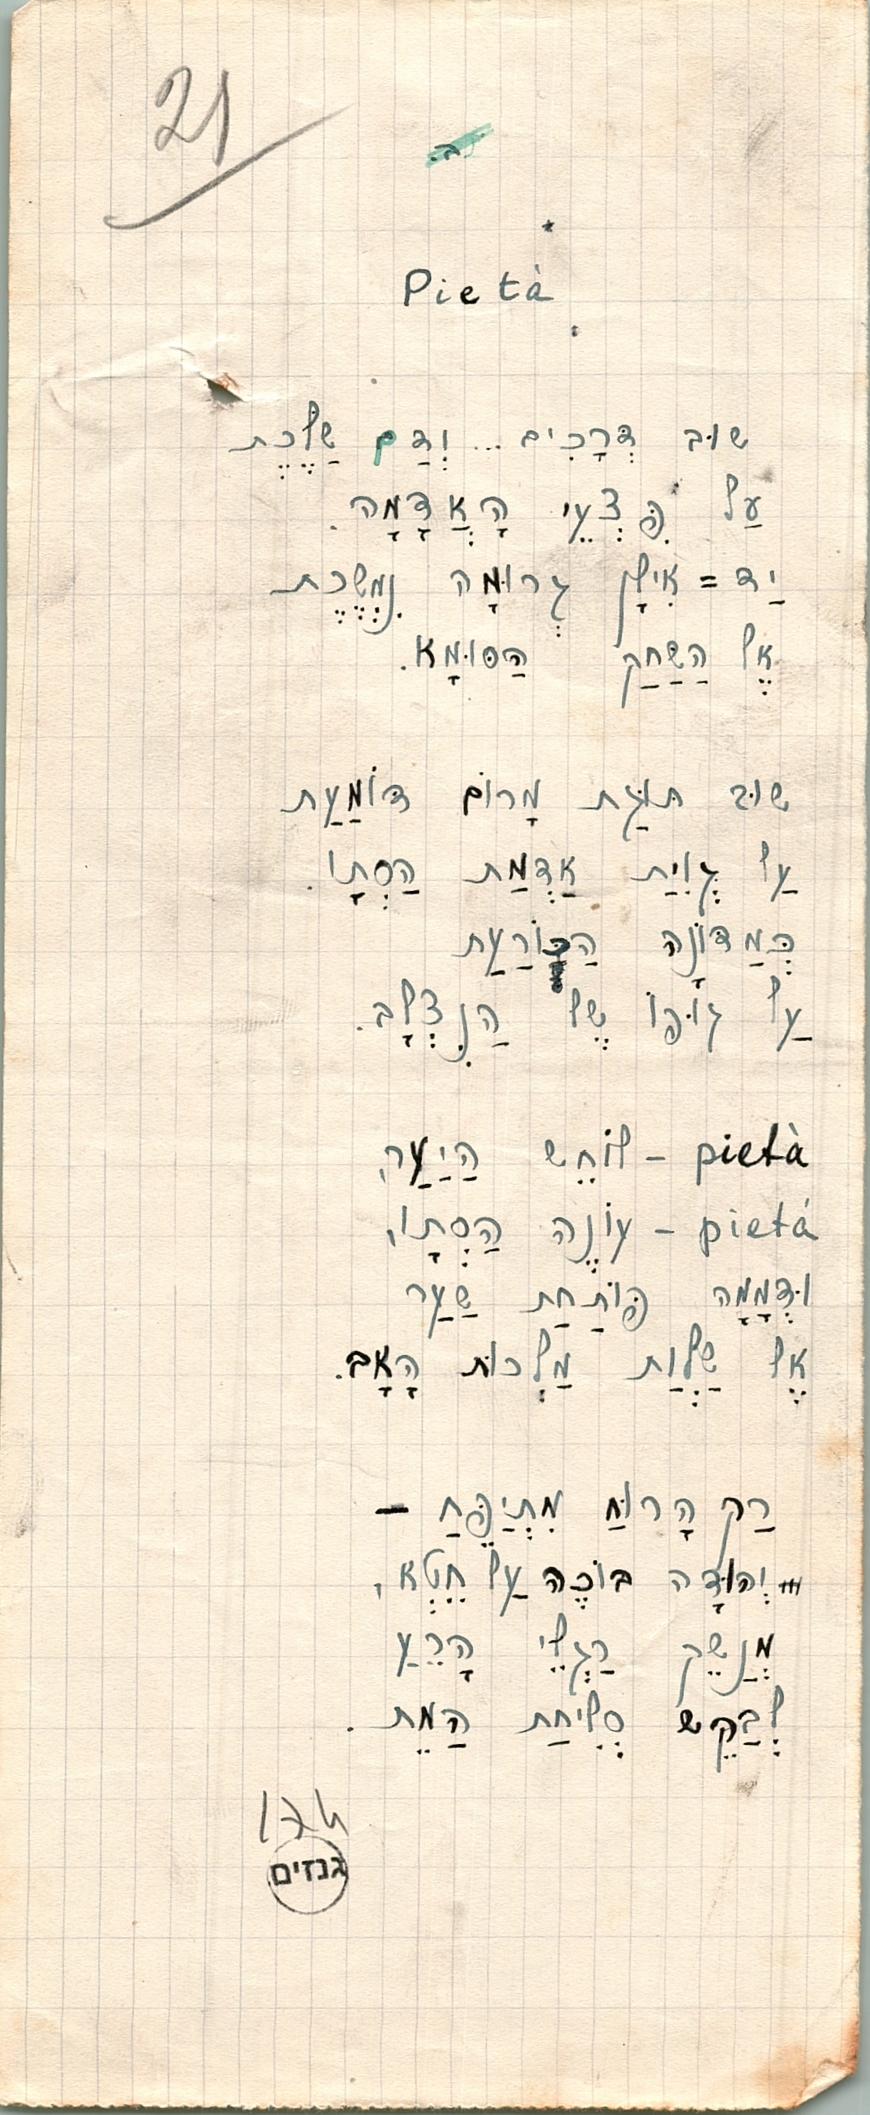 21
ב.
Pietà
שׁוּב דְּרָכִים... וְדַם שַׁלֶּכֶת
עַל פִּצְעֵי הָאֲדָמָה.
יַד=אִילָן גְּרוּמָה נִמְשֶׁכֶת
אֶל הַשַּׁחַק הַסּוּמָא.
שׁוּב תּוּגַת מָרוֹם דּוֹמַעַת
עַל גְּוִיַּת אַדְמַת הַסְּתָו.
כְּמַדּוֹנָה הַכּוֹרַעַת
עַל גּוּפוֹ שֶׁל הַנִּצְלָב.
pietà – לוֹחֵשׁ הַיַּעַר,
pietà – עוֹנֶה הַסְּתָו,
וּדְמָמָה פּוֹתַחַת שַׁעַר
אֶל שַׁלְוַת מַלְכוּת הָאָב.
רַק הָרוּחַ מִתְיַפֵּחַ –
...יְהוּדָה בּוֹכֶה עַל חֶטְא,
מְנַשֵּׁק רַגְלֵי הָרֵעַ
לְבַקֵּשׁ סְלִיחַת הַמֵּת.
גנזים